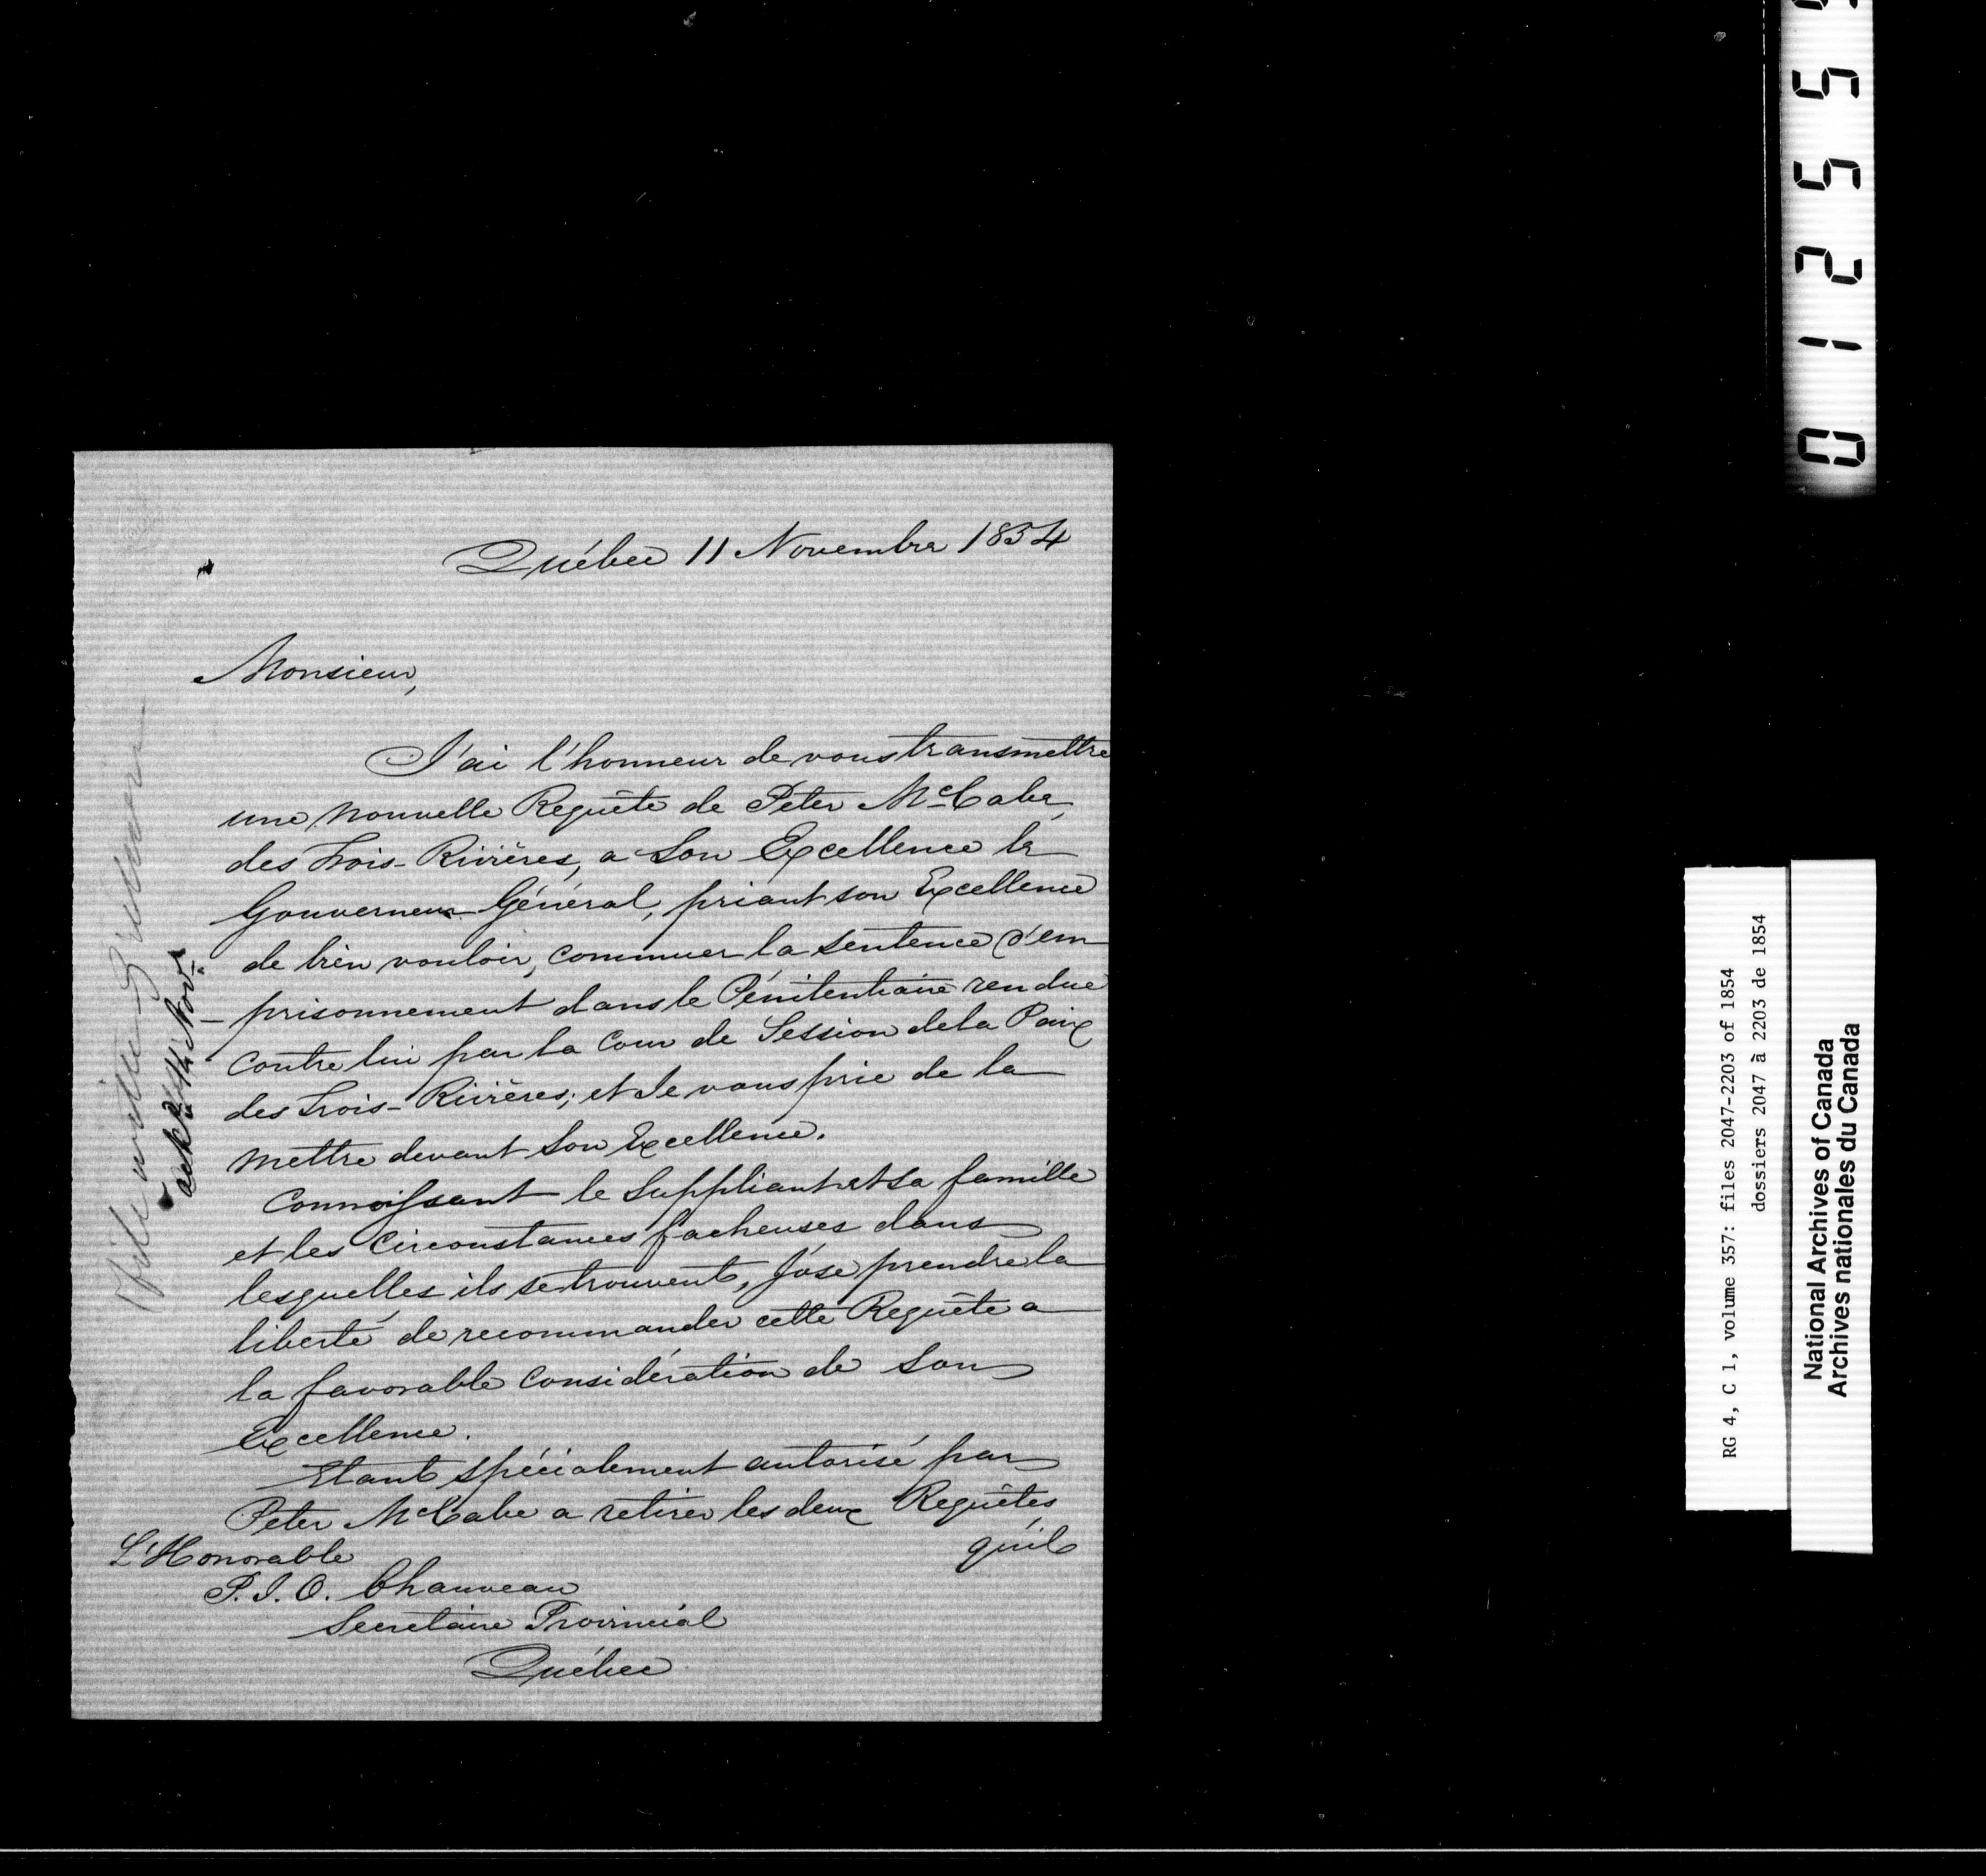 Québec 11 Novembre 1854
Monsieur,
J'ai l'honneur de vous transmettre
une nouvelle Requête de Peter McCabe,
des Trois-Rivières, a Son Excellence le
Gouverneur Général, priant son Excellence
de bien vouloir, commuer la sentence d'em
-prisonnement dans le Pénitentiaire rendue
contre lui par la Cour de Session de la Paix
des Trois-Rivières; et Je vous prie de la
mettre devant Son Excellence.
Connoissant le Suppliant et sa famille
et les Circonstances facheuses dans
lesquelles ils se trouvent, J'ose prendre la
liberté de recommander cette Requête a
la favorable Considération de Son
Excellence.
Etant spécialement autorisé par
Peter McCabe a retirer les deux Requêtes
qu'il
L'Honorable
P. J. O. Chauveau
Secretaire Provincial
Québec
File with
Nov:
0 1 2 5 5
RG 4, C 1, volume 357: files 2047-2203 of 1854
dossiers 2047 à 2203 de 1854
National Archives of Canada
Archives nationales du Canada